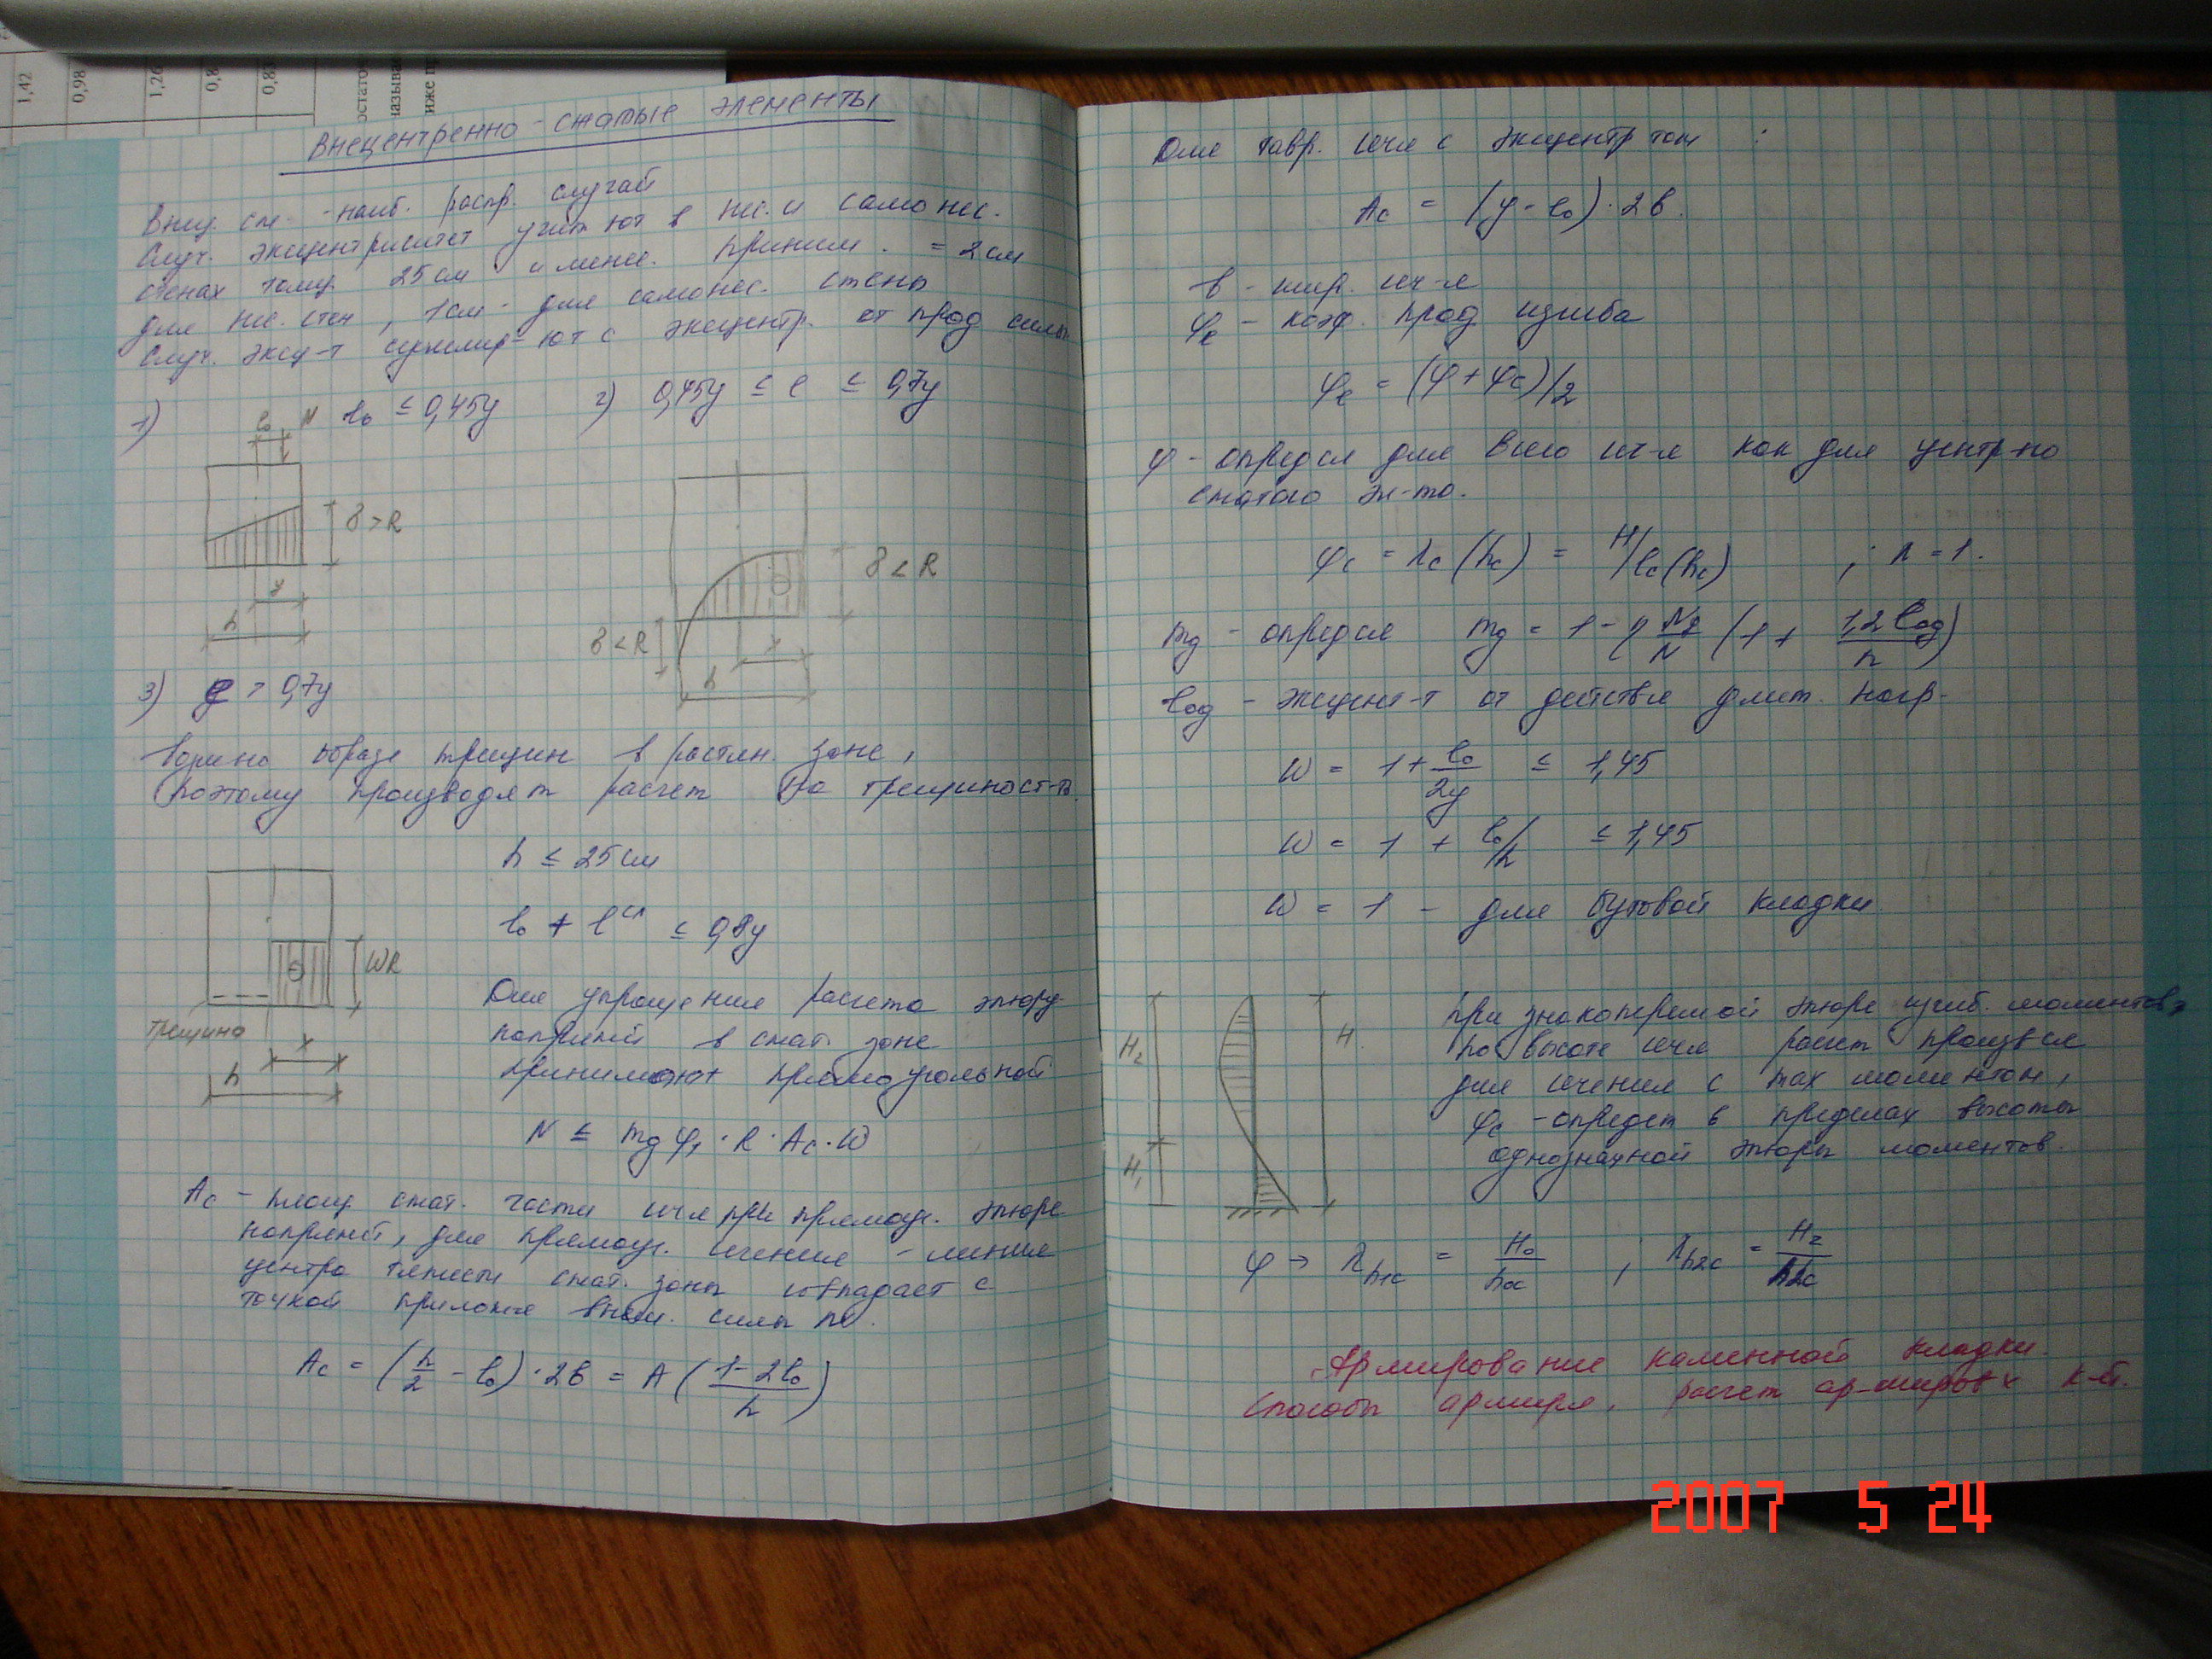 1,42
0,98
1,26
0,8
0,83
остаток
называ
иже пр
Внецентренно-сжатые элементы
Внец. сж. - наиб. распр. случай
Случ. эксцентриситет учит ют в нес. и самонес.
стенах толщ. 25см и менее. приним. = 2см
для нес. стен, 1см - для самонес. стены
Случ. эксц-т суммир-ют с эксцентр. от прод силы
1) e₀ ≤ 0,45y 2) 0,45y ≤ e ≤ 0,7y
e₀ N
δ > R
y
h
δ < R
δ < R
x
h
3) e > 0,7y
образ трещин в растян. зоне,
поэтому производят расчет по трещиност-ти.
h ≤ 25см
e₀ + eᶜˡ ≤ 0,8y
WR
трещина
x
h
Для упрощения расчета эпюру
напряжий в сжат. зоне
принимают прямоугольной
N ≤ mg φ₁ · R · Ac · W
Ac - площ. сжат. части сеч я при прямоуг. эпюре
напряжей, для прямоуг. сечения - линия
центра тяжести сжат. зоны совпадает с
точкой прилож я внеш. силы N.
Ac = (h/2 - e₀) · 2в = A (1-2e₀/h)
Для тавр. сеч я с эксцентр том :
Ac = (y - e₀) · 2в.
в - шир. сеч-я
φc - коэф. прод изгиба
φc = (φ + φc)/2
φ - определ для всего сеч-я как для центр-но
сжатого эл-та.
φc = λc (hc) = H/ic(hc) ; λ = 1.
mg - определ mg = 1 - η Ng/N (1 + 1,2 e₀g/h)
e₀g - эксцент-т от действ я длит. нагр-
W = 1 + e₀/2y ≤ 1,45
W = 1 + e₀/h ≤ 1,45
W = 1 - для бутовой кладки
H₂
H₁
H
При знакоперемой эпюре изгиб. моментов
по высоте сеч я расчет произв ся
для сечения с max моментом,
φc - опредет в пределах высоты
однозначной эпюры моментов.
φ → λh1c = H₀/h0c ; λh2c = H₂/h2c
Армирование каменной кладки.
Способы армир я, расчет ар-миров х к-й.
2007 5 24